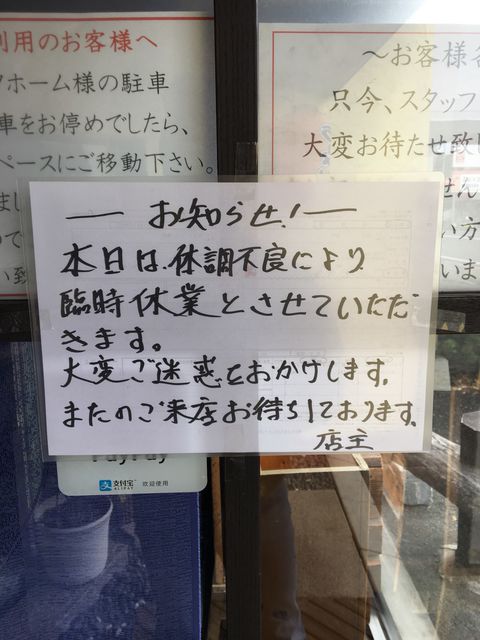 利用のお客様へ
ホーム様の駐車
車をお停めでしたら、
ペースにご移動下さい。
～お客様各
只今、スタッフ
大変お待たせ致し
お知らせ!
本日は、体調不良により
臨時休業とさせていただ
きます。
大変ご迷惑をおかけします。
またのご来店お待ちしております。
店主
PayPay
支付宝
ALIPAY
欢迎使用